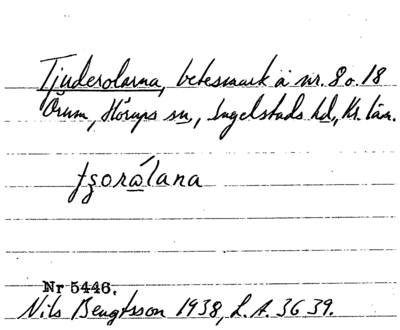 Tjuderolorna, betesmark å nr. 8 o. 18
Örum, Hörups sn, Ingelstads hd, Kr. län.
Nr 5446.
Nils Bengtsson 1938, L.A. 3639.